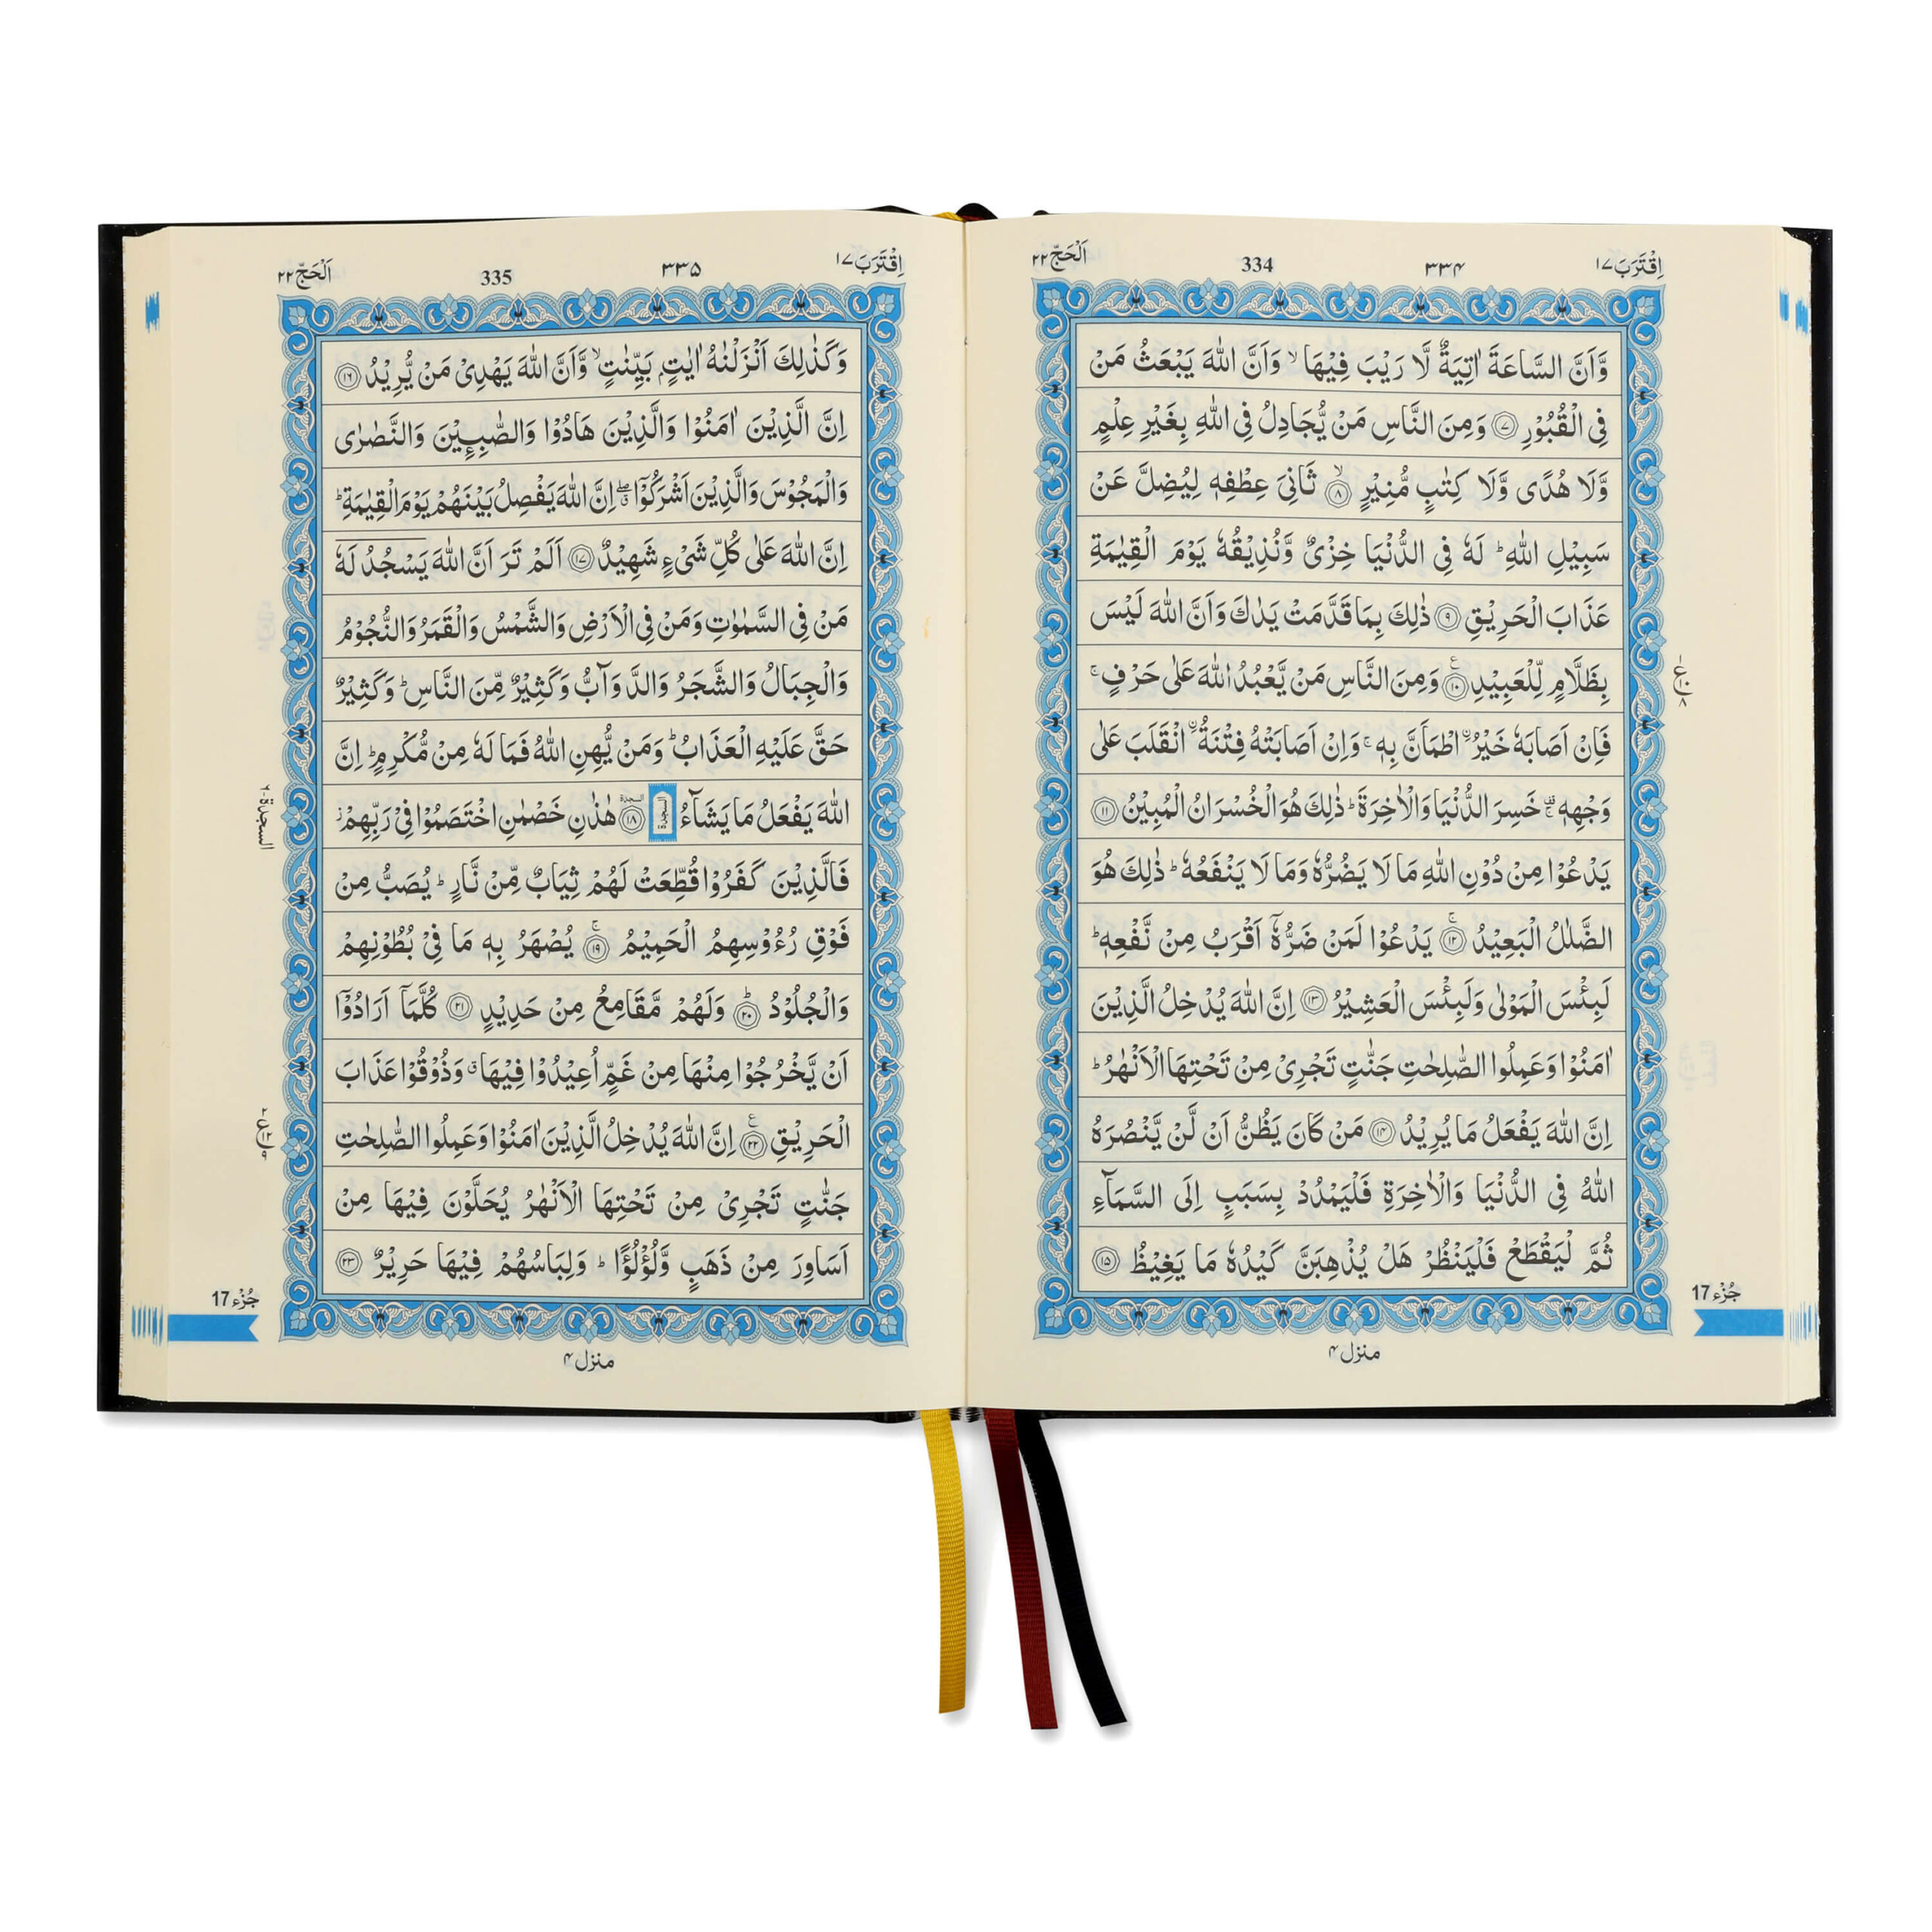 اِقْتَرَبَ ١٧
٣٣۴
334
اَلْحَجّ ٢٢
وَّاَنَّ السَّاعَةَ اٰتِيَةٌ لَّا رَيْبَ فِيْهَا ۙ وَاَنَّ اللّٰهَ يَبْعَثُ مَنْ
فِي الْقُبُوْرِ ۝٧ وَمِنَ النَّاسِ مَنْ يُّجَادِلُ فِي اللّٰهِ بِغَيْرِ عِلْمٍ
وَّلَا هُدًى وَّلَا كِتٰبٍ مُّنِيْرٍ ۝٨ۙ ثَانِيَ عِطْفِهٖ لِيُضِلَّ عَنْ
سَبِيْلِ اللّٰهِ ؕ لَهٗ فِي الدُّنْيَا خِزْيٌ وَّنُذِيْقُهٗ يَوْمَ الْقِيٰمَةِ
عَذَابَ الْحَرِيْقِ ۝٩ ذٰلِكَ بِمَا قَدَّمَتْ يَدٰكَ وَاَنَّ اللّٰهَ لَيْسَ
بِظَلَّامٍ لِّلْعَبِيْدِ ۝١٠ؑ وَمِنَ النَّاسِ مَنْ يَّعْبُدُ اللّٰهَ عَلٰى حَرْفٍ ۚ
فَاِنْ اَصَابَهٗ خَيْرُ ۨاطْمَاَنَّ بِهٖ ۚ وَاِنْ اَصَابَتْهُ فِتْنَةُ ۨانْقَلَبَ عَلٰى
وَجْهِهٖ ۚ خَسِرَ الدُّنْيَا وَالْاٰخِرَةَ ؕ ذٰلِكَ هُوَ الْخُسْرَانُ الْمُبِيْنُ ۝١١
يَدْعُوْا مِنْ دُوْنِ اللّٰهِ مَا لَا يَضُرُّهٗ وَمَا لَا يَنْفَعُهٗ ؕ ذٰلِكَ هُوَ
الضَّلٰلُ الْبَعِيْدُ ۝١٢ۚ يَدْعُوْا لَمَنْ ضَرُّهٗۤ اَقْرَبُ مِنْ نَّفْعِهٖ ؕ
لَبِئْسَ الْمَوْلٰى وَلَبِئْسَ الْعَشِيْرُ ۝١٣ اِنَّ اللّٰهَ يُدْخِلُ الَّذِيْنَ
اٰمَنُوْا وَعَمِلُوا الصّٰلِحٰتِ جَنّٰتٍ تَجْرِيْ مِنْ تَحْتِهَا الْاَنْهٰرُ ؕ
اِنَّ اللّٰهَ يَفْعَلُ مَا يُرِيْدُ ۝١٤ مَنْ كَانَ يَظُنُّ اَنْ لَّنْ يَّنْصُرَهُ
اللّٰهُ فِي الدُّنْيَا وَالْاٰخِرَةِ فَلْيَمْدُدْ بِسَبَبٍ اِلَى السَّمَآءِ
ثُمَّ لْيَقْطَعْ فَلْيَنْظُرْ هَلْ يُذْهِبَنَّ كَيْدُهٗ مَا يَغِيْظُ ۝١٥
جُزْء 17
منزل ۴
اِقْتَرَبَ ١٧
٣٣۵
335
اَلْحَجّ ٢٢
وَكَذٰلِكَ اَنْزَلْنٰهُ اٰيٰتٍۭ بَيِّنٰتٍ ۙ وَّاَنَّ اللّٰهَ يَهْدِيْ مَنْ يُّرِيْدُ ۝١٦
اِنَّ الَّذِيْنَ اٰمَنُوْا وَالَّذِيْنَ هَادُوْا وَالصّٰبِـِٕيْنَ وَالنَّصٰرٰى
وَالْمَجُوْسَ وَالَّذِيْنَ اَشْرَكُوْۤا ۖ اِنَّ اللّٰهَ يَفْصِلُ بَيْنَهُمْ يَوْمَ الْقِيٰمَةِ ؕ
اِنَّ اللّٰهَ عَلٰى كُلِّ شَيْءٍ شَهِيْدٌ ۝١٧ اَلَمْ تَرَ اَنَّ اللّٰهَ يَسْجُدُ لَهٗ
مَنْ فِي السَّمٰوٰتِ وَمَنْ فِي الْاَرْضِ وَالشَّمْسُ وَالْقَمَرُ وَالنُّجُوْمُ
وَالْجِبَالُ وَالشَّجَرُ وَالدَّوَآبُّ وَكَثِيْرٌ مِّنَ النَّاسِ ؕ وَكَثِيْرٌ
حَقَّ عَلَيْهِ الْعَذَابُ ؕ وَمَنْ يُّهِنِ اللّٰهُ فَمَا لَهٗ مِنْ مُّكْرِمٍ ؕ اِنَّ
اللّٰهَ يَفْعَلُ مَا يَشَآءُ السجدة ۝١٨ هٰذٰنِ خَصْمٰنِ اخْتَصَمُوْا فِيْ رَبِّهِمْ ؗ
فَالَّذِيْنَ كَفَرُوْا قُطِّعَتْ لَهُمْ ثِيَابٌ مِّنْ نَّارٍ ؕ يُصَبُّ مِنْ
فَوْقِ رُءُوْسِهِمُ الْحَمِيْمُ ۝١٩ۚ يُصْهَرُ بِهٖ مَا فِيْ بُطُوْنِهِمْ
وَالْجُلُوْدُ ۝٢٠ؕ وَلَهُمْ مَّقَامِعُ مِنْ حَدِيْدٍ ۝٢١ كُلَّمَاۤ اَرَادُوْۤا
اَنْ يَّخْرُجُوْا مِنْهَا مِنْ غَمٍّ اُعِيْدُوْا فِيْهَا ۗ وَذُوْقُوْا عَذَابَ
الْحَرِيْقِ ۝٢٢ؑ اِنَّ اللّٰهَ يُدْخِلُ الَّذِيْنَ اٰمَنُوْا وَعَمِلُوا الصّٰلِحٰتِ
جَنّٰتٍ تَجْرِيْ مِنْ تَحْتِهَا الْاَنْهٰرُ يُحَلَّوْنَ فِيْهَا مِنْ
اَسَاوِرَ مِنْ ذَهَبٍ وَّلُؤْلُؤًا ؕ وَلِبَاسُهُمْ فِيْهَا حَرِيْرٌ ۝٢٣
السجدة ٦
جُزْء 17
منزل ۴